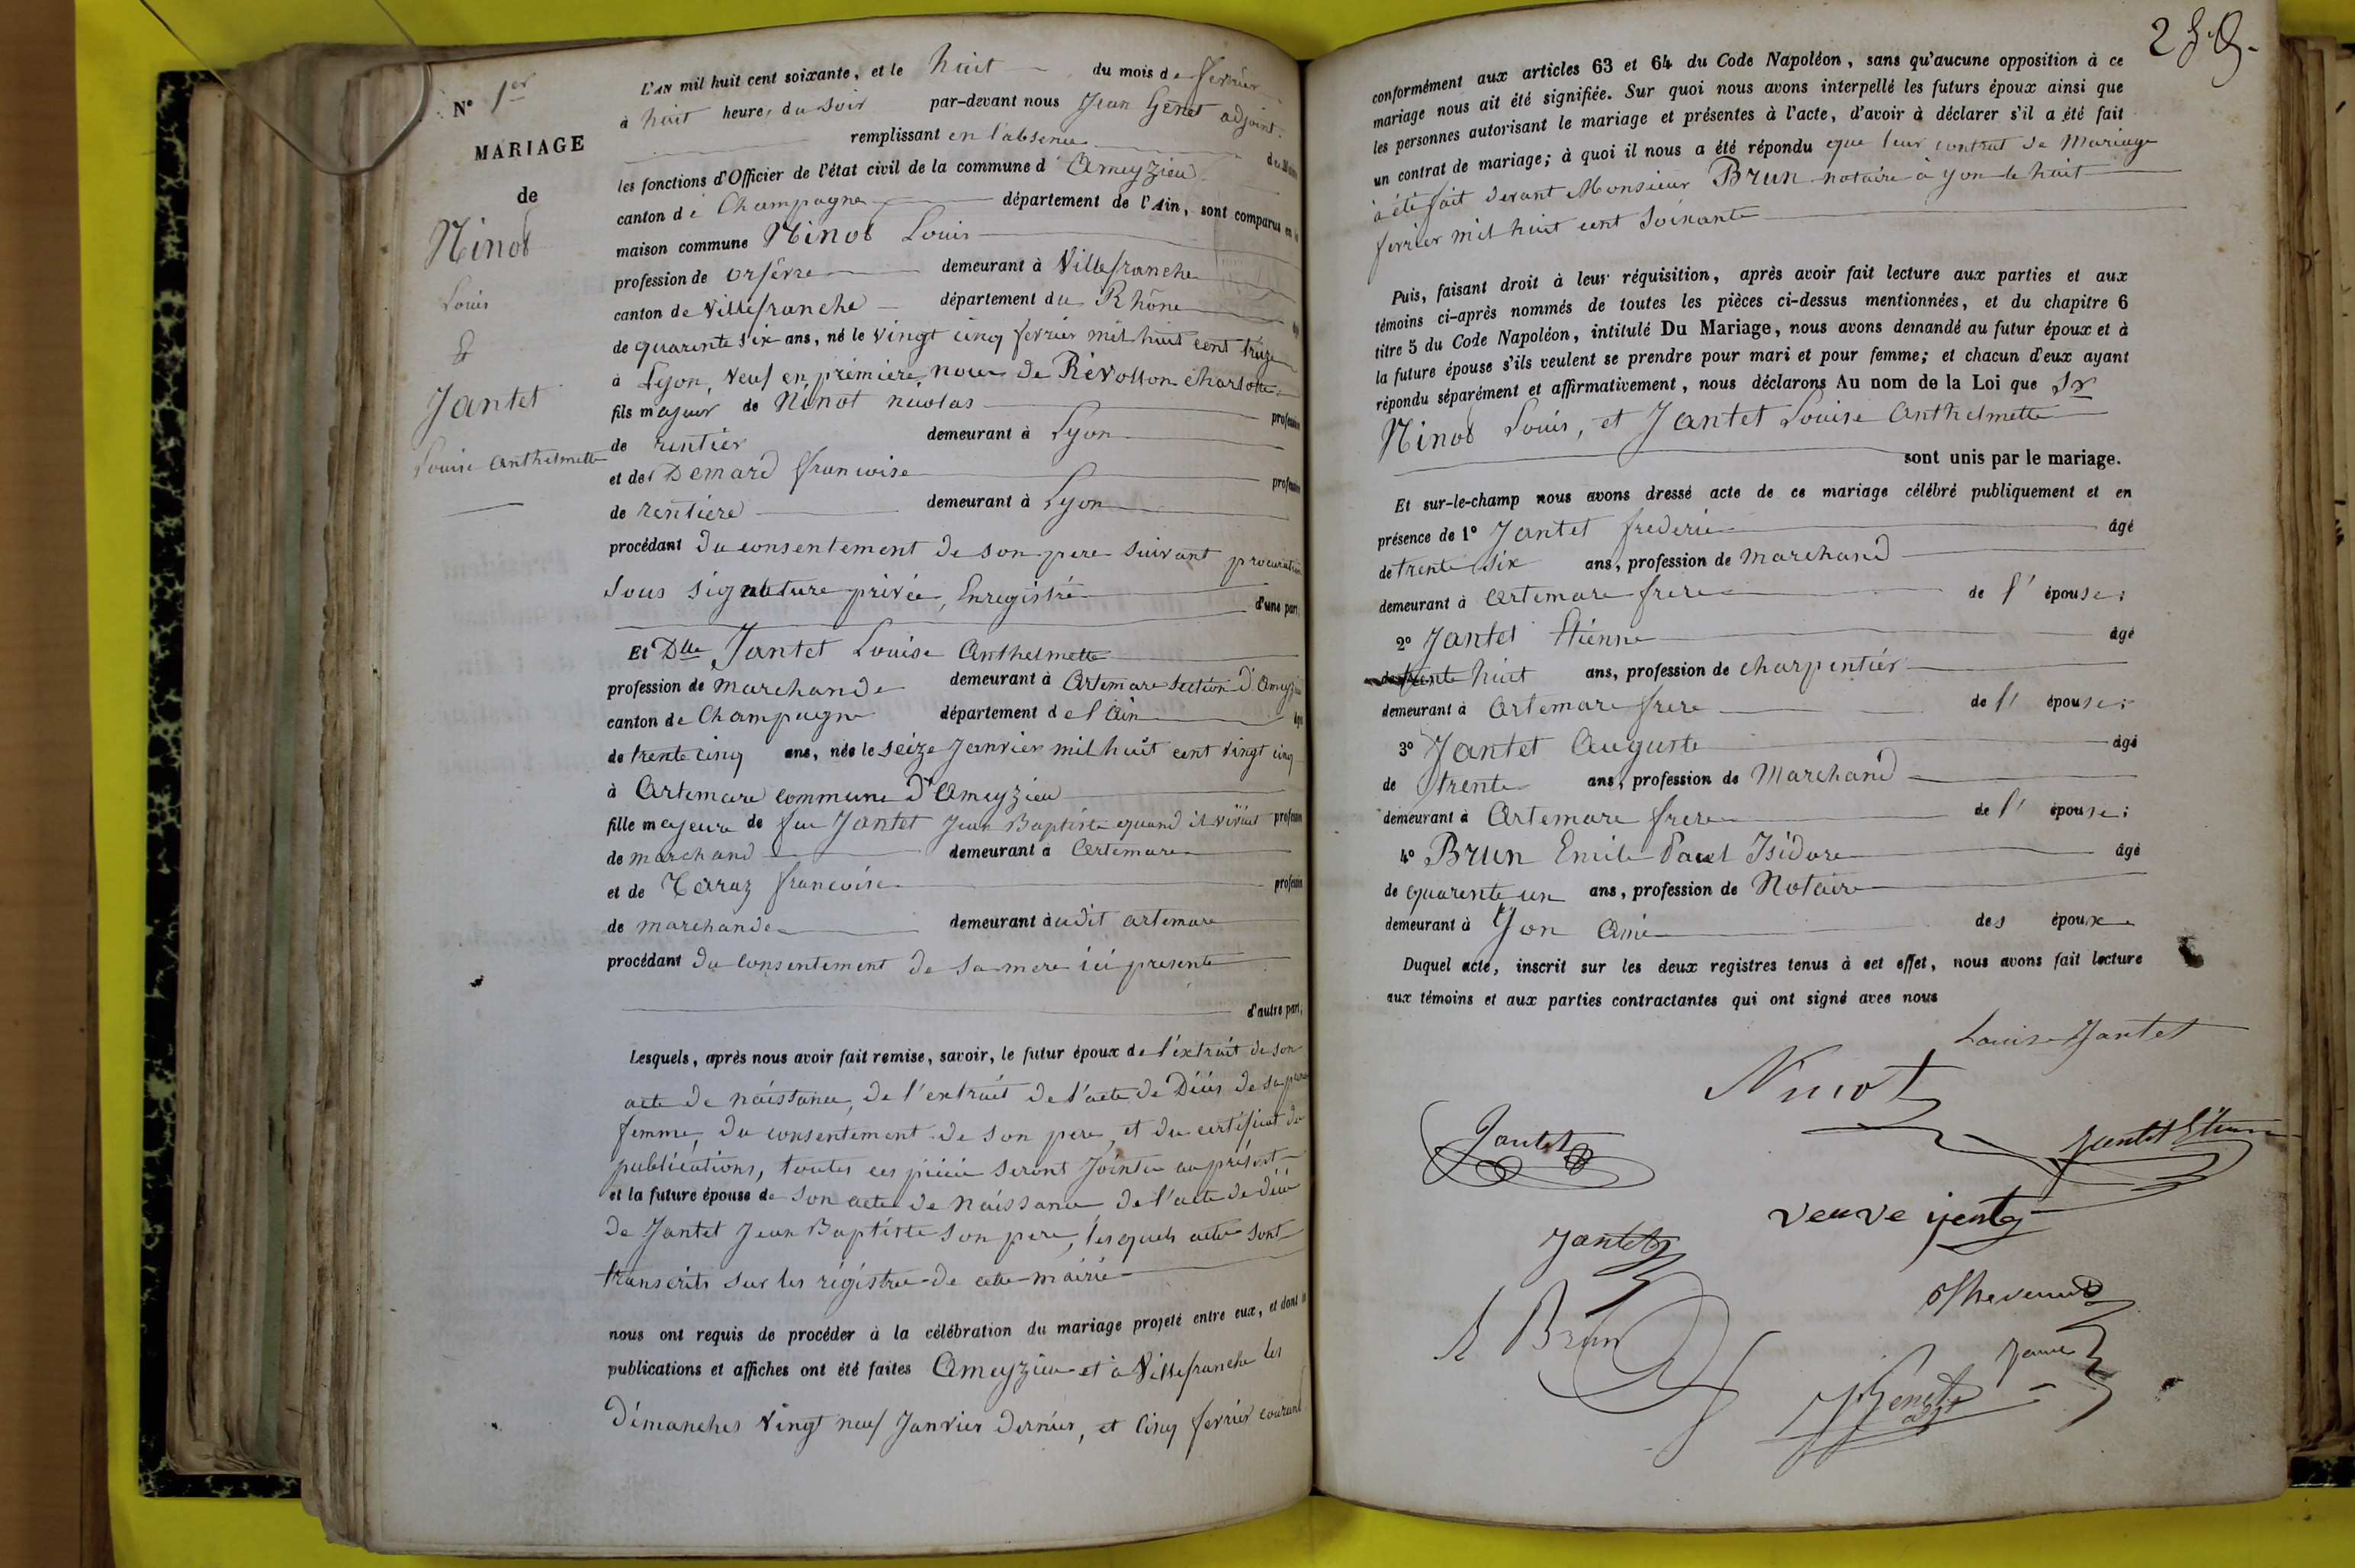 N° 1er
MARIAGE
de
Ninot
Louis
&
Jantet
Louise Anthelmette
L'AN mil huit cent soixante, et le huit du mois de fevrier
à huit heures du soir par-devant nous Jean Genet adjoint
remplissant en l'absence du Maire
les fonctions d'Officier de l'état civil de la commune d'Ameyzieu
canton de Champagne département de l'Ain, sont comparus en la
maison commune Ninot Louis
profession de orfèvre demeurant à Villefranche
canton de Villefranche département du Rhône
de quarente six ans, né le vingt cinq fevrier mil huit cent treize
à Lyon, Veuf en première noce de Revolson Charlotte
fils majeur de Ninot nicolas profession
de rentier demeurant à Lyon
et de Demard francoise profession
de rentière demeurant à Lyon
procédant du consentement de son pere suivant procuration
sous signature privée, Enregistrée
d'une part,
Et Dlle Jantet Louise Anthelmette
profession de marchande demeurant à Artemare section d'Ameyzieu
canton de Champagne département de l'Ain
de trente cinq ans, née le seize Janvier mil huit cent vingt cinq
à Artemare commune d'Ameyzieu
fille majeure de feu Jantet Jean Baptiste quand il vivait profession
de marchand demeurant à Artemare
et de Terraz francoise profession
de marchande demeurant audit artemare
procédant du Consentement de sa mere ici presente
d'autre part,
Lesquels, après nous avoir fait remise, savoir, le futur époux de l'extrait de son
acte de naissance, de l'extrait de l'acte de Décès de sa
femme, du consentement de son pere, et du certificat de
publications, toutes ces pièces seront Jointes au présent
et la future épouse de son acte de naissance de l'acte de décès
de Jantet Jean Baptiste son pere, lesquels actes sont
transcrits sur les régistres de cette mairie
nous ont requis de procéder à la célébration du mariage projeté entre eux, et dont les
publications et affiches ont été faites Ameyzieu et à Villefranche les
Dimanches vingt neuf Janvier dernier, et Cinq fevrier courant
conformément aux articles 63 et 64 du Code Napoléon, sans qu'aucune opposition à ce
mariage nous ait été signifiée. Sur quoi nous avons interpellé les futurs époux ainsi que
les personnes autorisant le mariage et présentes à l'acte, d'avoir à déclarer s'il a été fait
un contrat de mariage; à quoi il nous a été répondu que leur contrat de Mariage
à été fait devant Monsieur Brun notaire à yon le huit
fevrier mil huit cent soixante
Puis, faisant droit à leur réquisition, après avoir fait lecture aux parties et aux
témoins ci-après nommés de toutes les pièces ci-dessus mentionnées, et du chapitre 6
titre 5 du Code Napoléon, intitulé Du Mariage, nous avons demandé au futur époux et à
la future épouse s'ils veulent se prendre pour mari et pour femme; et chacun d'eux ayant
répondu séparément et affirmativement, nous déclarons Au nom de la Loi que Sr
Ninot Louis, et Jantet Louise Anthelmette
sont unis par le mariage.
Et sur-le-champ nous avons dressé acte de ce mariage célébré publiquement et en
présence de 1° Jantet frederic âgé
de trente six ans, profession de marchand
demeurant à Artemare frere de l'épouse;
2° Jantet Etienne âgé
de trente huit ans, profession de charpentier
demeurant à Artemare frere de l'épouse;
3° Jantet Auguste âgé
de trente ans, profession de Marchand
demeurant à Artemare frere de l'épouse;
4° Brun Emile Paul Isidore âgé
de quarente un ans, profession de Notaire
demeurant à Yon Ami des époux
Duquel acte, inscrit sur les deux registres tenus à cet effet, nous avons fait lecture
aux témoins et aux parties contractantes qui ont signé avec nous
Louise Jantet
Ninot
Jantet
Jantet Etienne
veuve
Jantet
Brun
Genet
adjt